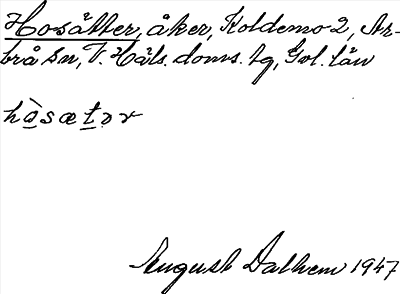 Hosätter, åker, Koldemo 2, Ar-
brå sn, V. Häls. doms. tg, Gvl. län
hɔ̀sætər
August Dalhem 1947